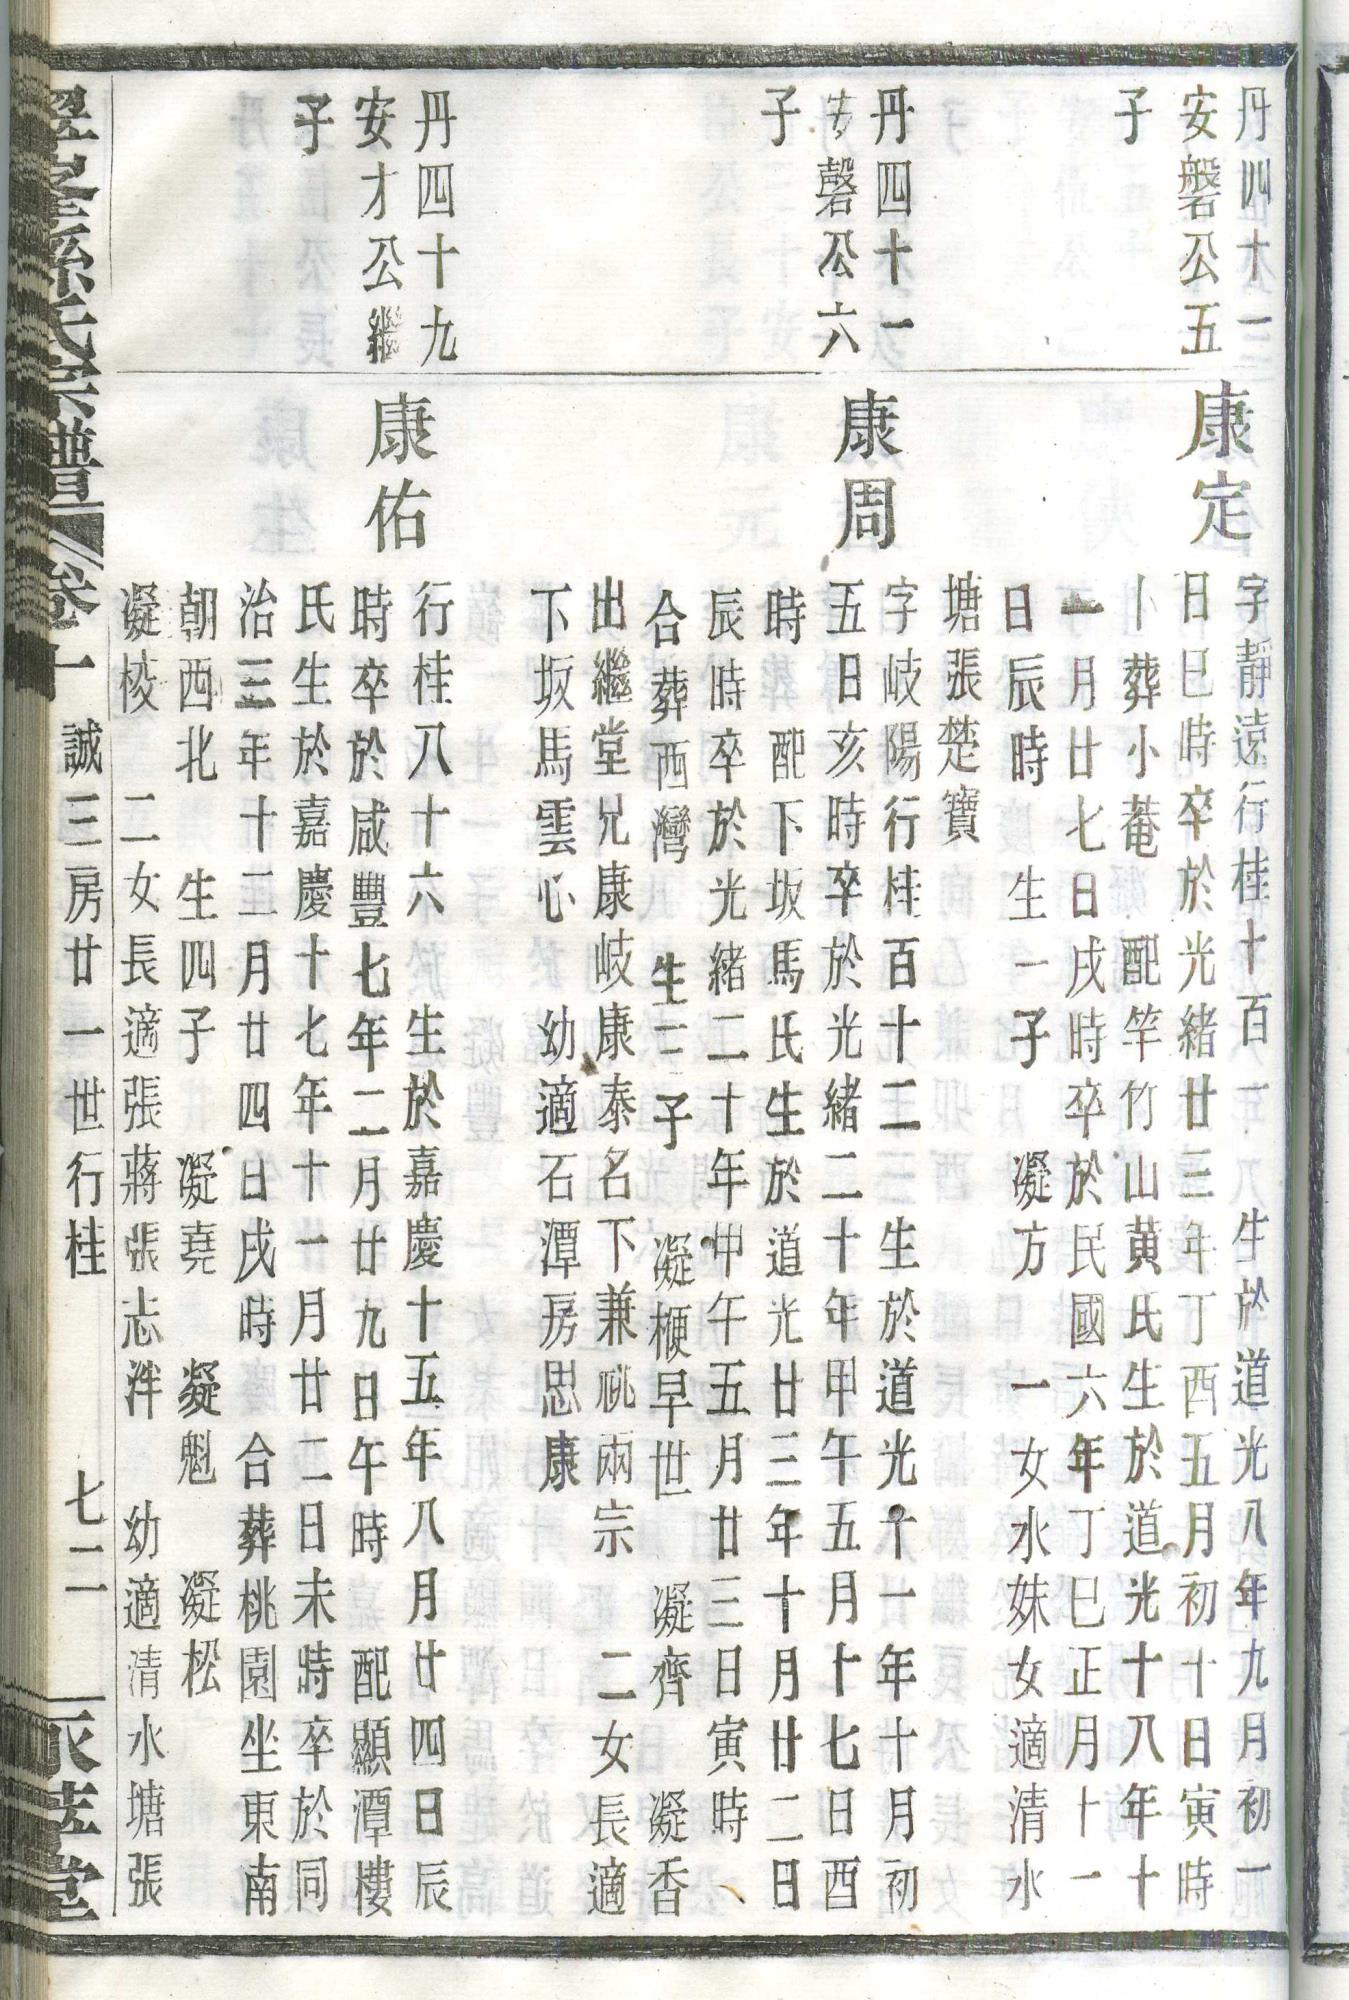 丹四十一
安磐公五
子
康定
字靜遠行桂十百一生於道光八年九月初一
日巳時卒於光緒廿三年丁酉五月初十日寅時
葬小菴配竿竹山黃氏生於道光十八年十
一月廿七日戌時卒於民國六年丁巳正月十一
日辰時 生一子 凝方 一女水妹女適清水
塘張楚寶
丹四十一
安磬公六
子
康周
字岐陽行桂百十二生於道光十一年十月初
五日亥時卒於光緒二十年甲午五月十七日酉
時 配下坂馬氏生於道光廿三年十月廿二日
辰時卒於光緒二十年甲午五月廿三日寅時、
合葬西灣 生三子 凝梗早世 凝齊 凝香
出繼堂兄康岐康泰名下兼祧兩宗 二女長適
下坂馬雲心 幼適石潭房思康
丹四十九
安才公繼
子
康佑
行桂八十六 生於嘉慶十五年八月廿四日辰
時卒於咸豐七年二月廿九日午時 配顯潭樓
氏生於嘉慶十七年十一月廿二日未時卒於同
治三年十二月廿四日戌時 合葬桃園坐東南
朝西北 生四子 凝堯 凝魁 凝松
凝棱 二女長適張蔣張志泮 幼適清水塘張
孫氏宗譜 卷十 誠三房廿一世行桂 七二 永莊堂